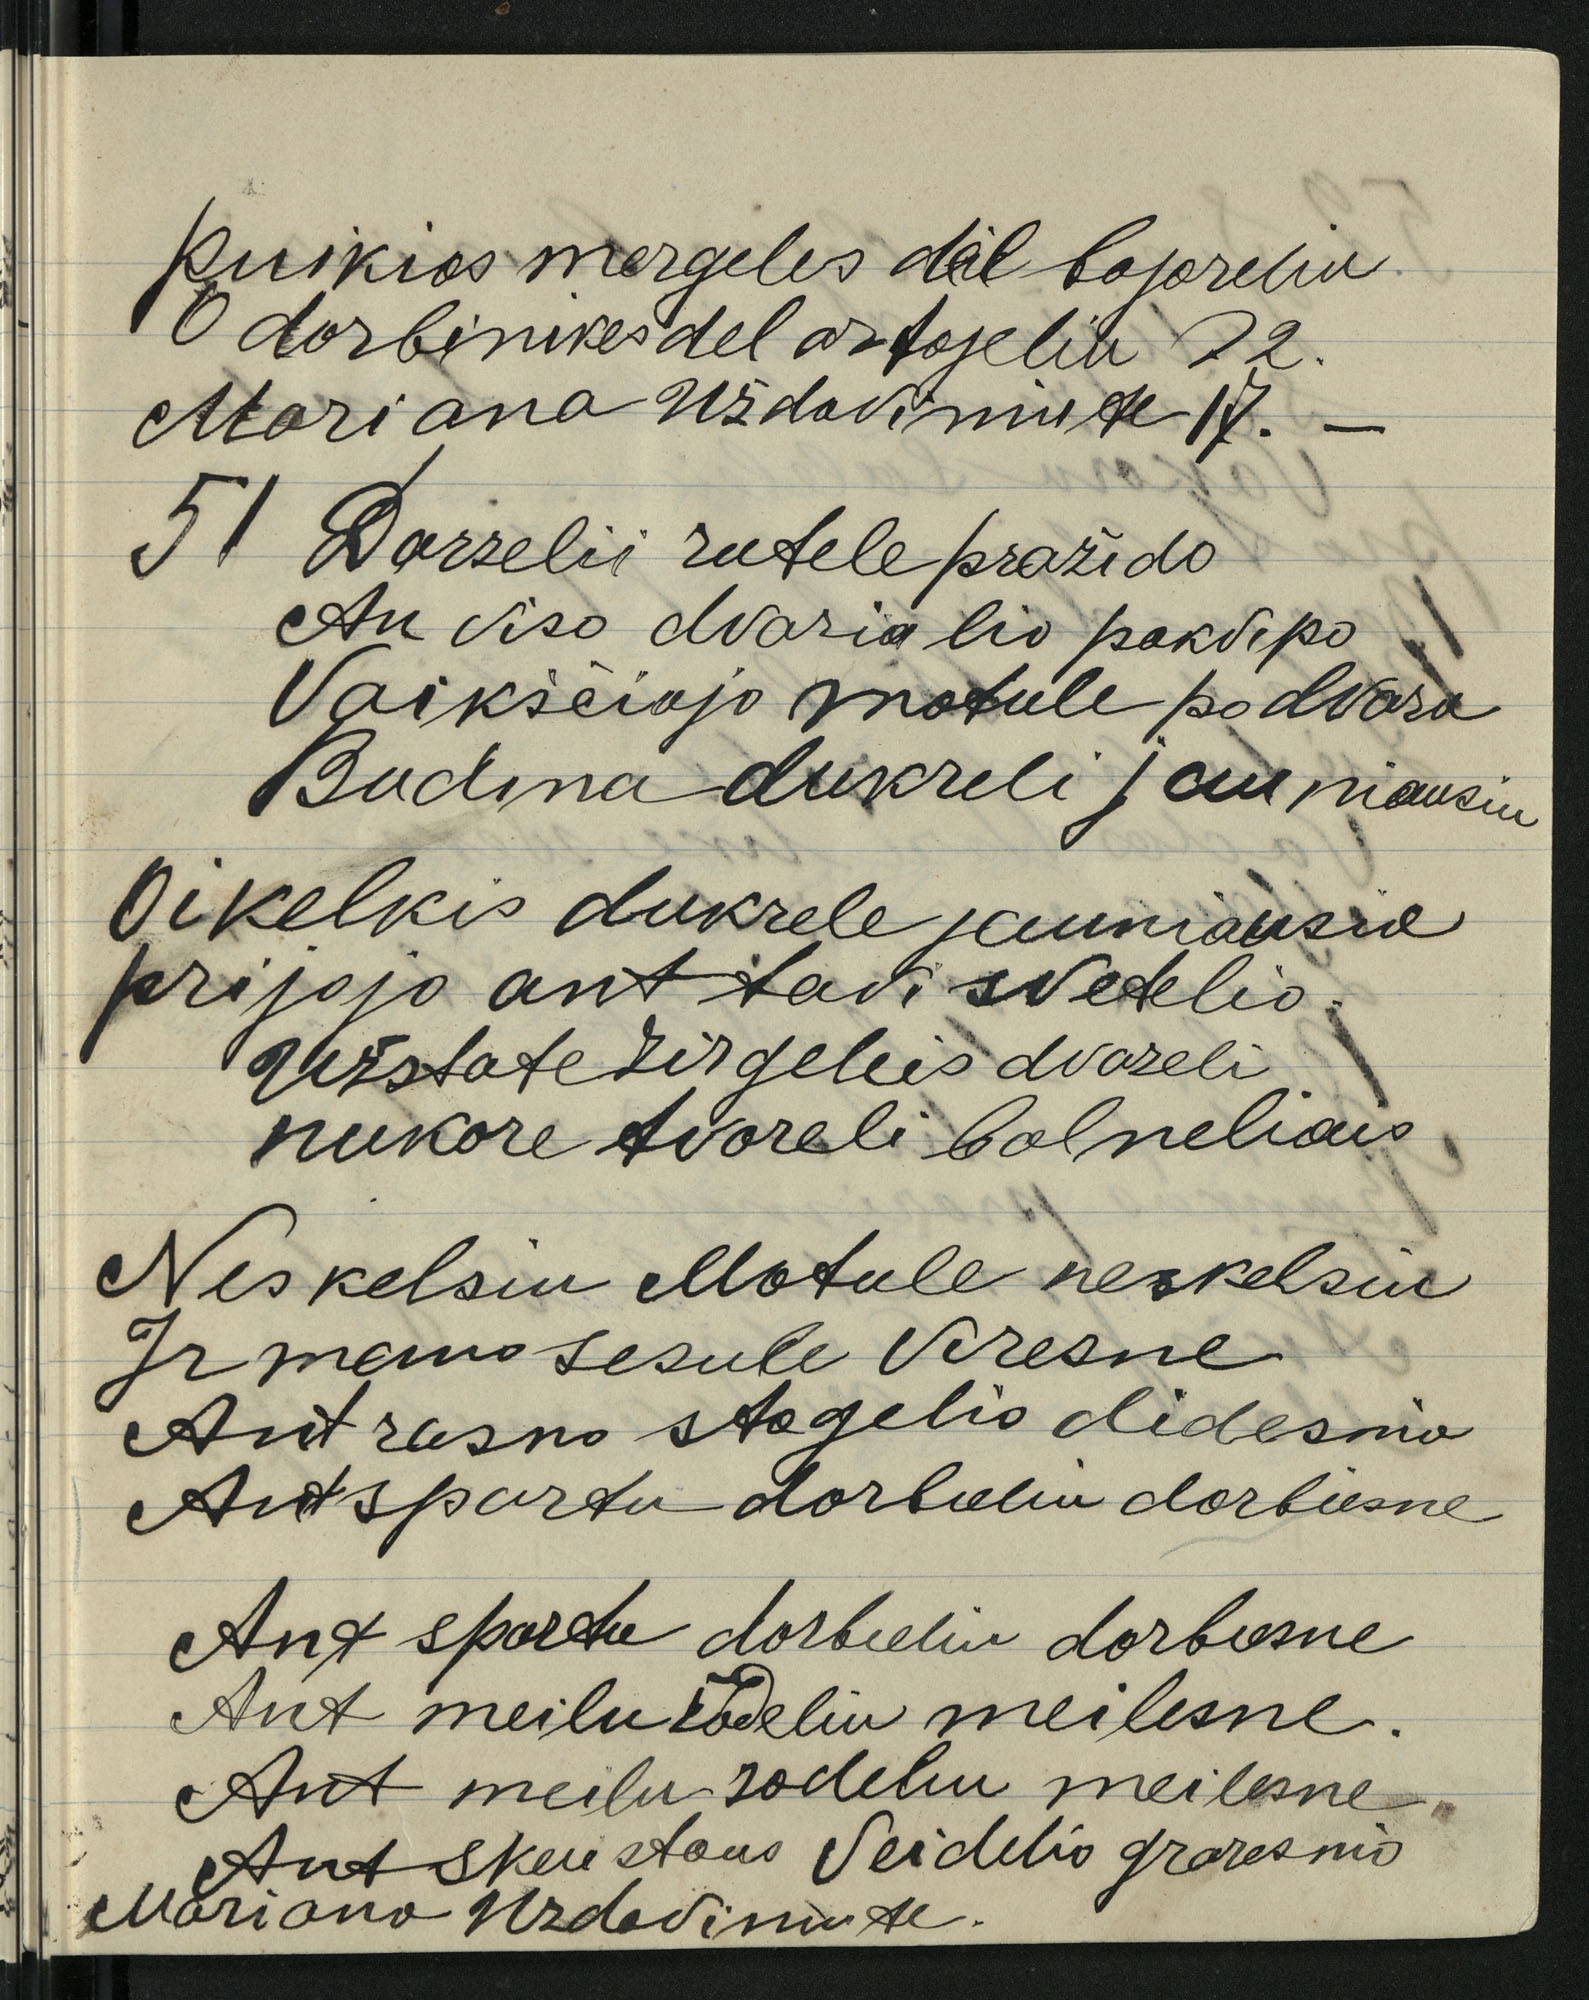 puikios mergeles dėl bajoreliu
O darbinikes del artojeliu 22.
Mariana Uždaviniute 17. —
51 Darzelii rutele pražido
An viso dvarialio pakvipo
Vaikščiojo motule po dvara
Budina dukreli jauniausiu
Oi kelkis dukrele jauniausia
prijojo ant tavi svetelio.
Užstate žirgeleis dvareli
nukore tvoreli balneliais
Neskelsiu Motule neskelsiu
Ir mano sesule viresne
Ant rasno stogelio didesnio
Ant spartu darbeliu darbiesne
Ant spartu darbeliu darbesne
Ant meilu žodeliu meilesne.
Ant meilu zodeliu meilesne
Ant skeistaus Veidelio grazesnio
Mariana Uzdaviniute.